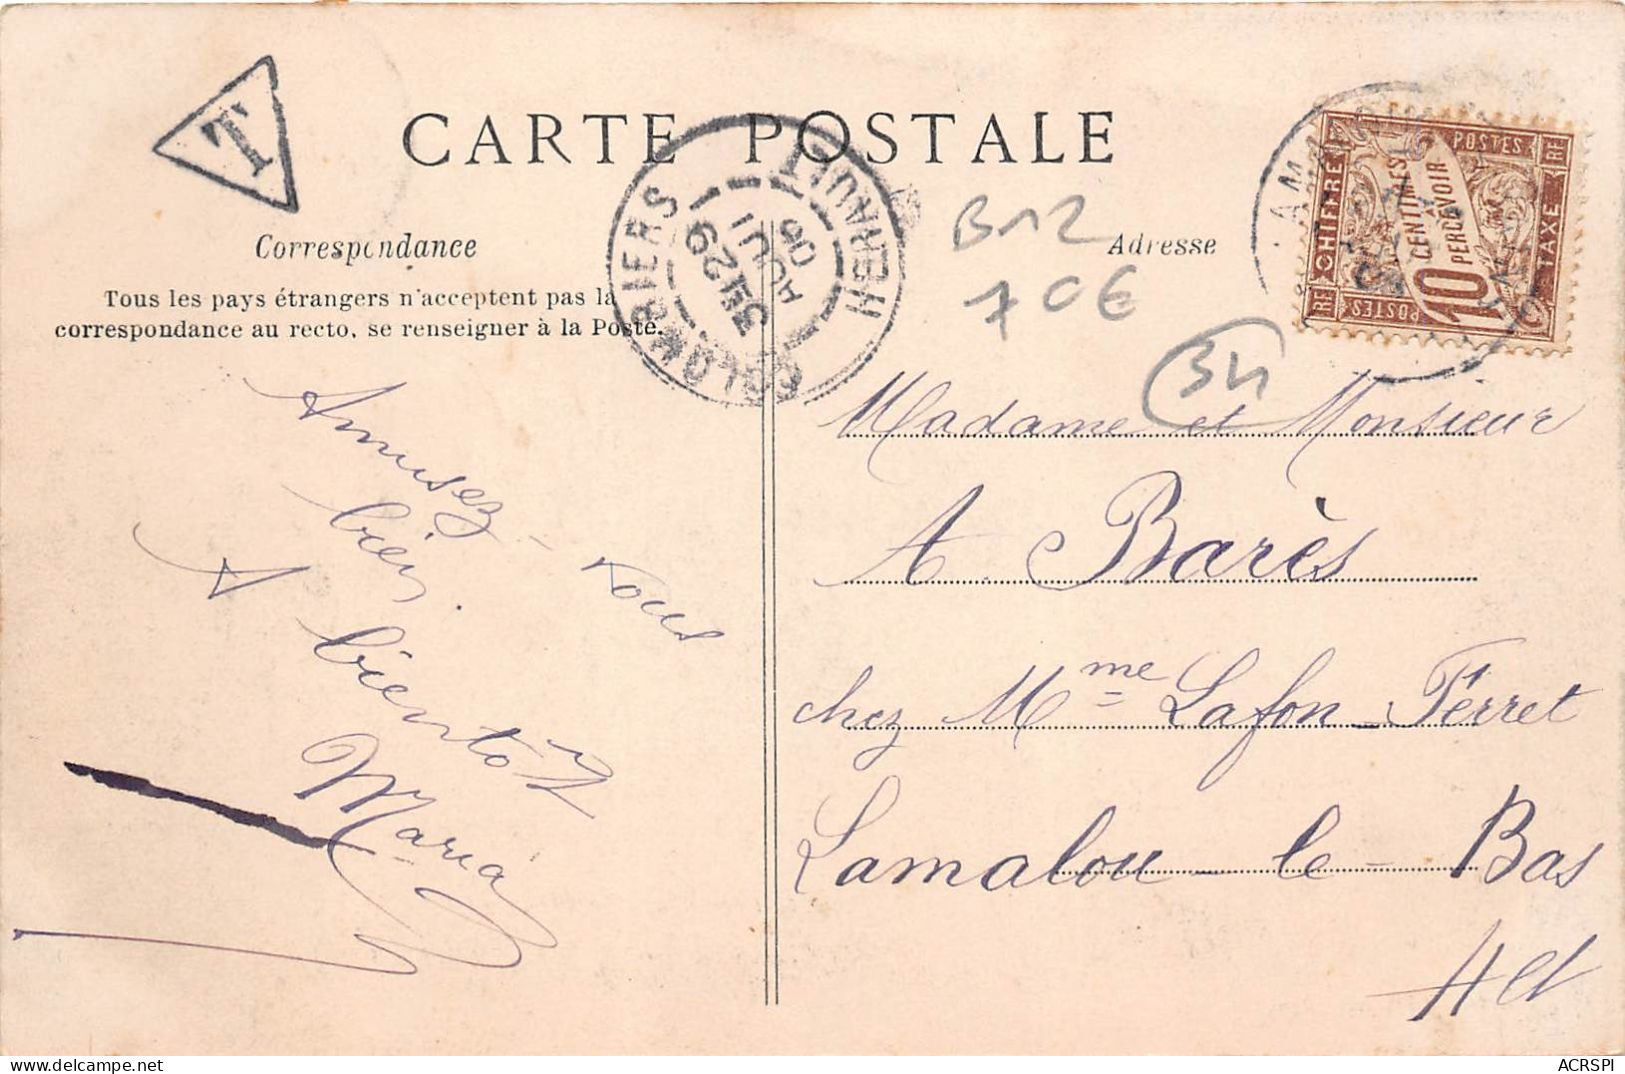 T
CARTE POSTALE
Correspondance
Tous les pays étrangers n'acceptent pas la
correspondance au recto, se renseigner à la Poste.
COLOMBIERS
HÉRAULT
3E
29
AOUT
06
B12
70€
34
Adresse
POSTES
RF
CHIFFRE
TAXE
10 CENTIMES
À
PERCEVOIR
RF
POSTES
Amusez-vous
bien.
A bientôt
Maria
Madame et Monsieur
A. Barès
chez Mme Lafon-Ferret
Lamalou-le-Bas
Hlt
ACRSPI